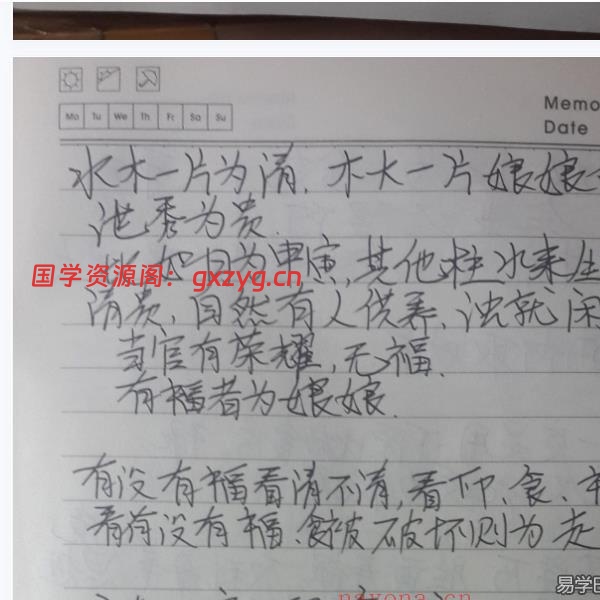 Memo
Mo Tu We Th Fr Sa Su
Date
水木一片为清，木火一片娘娘
泄秀为贵．
比如日为甲寅，其他柱水来生
国学资源阁：gxzyg.cn
清贵，自然有人供养，浊就闲
当官有荣耀，无福．
有福者为娘娘．
有没有福看清不清，看印、食、
看有没有福、食被破坏则为走
nayona.cn